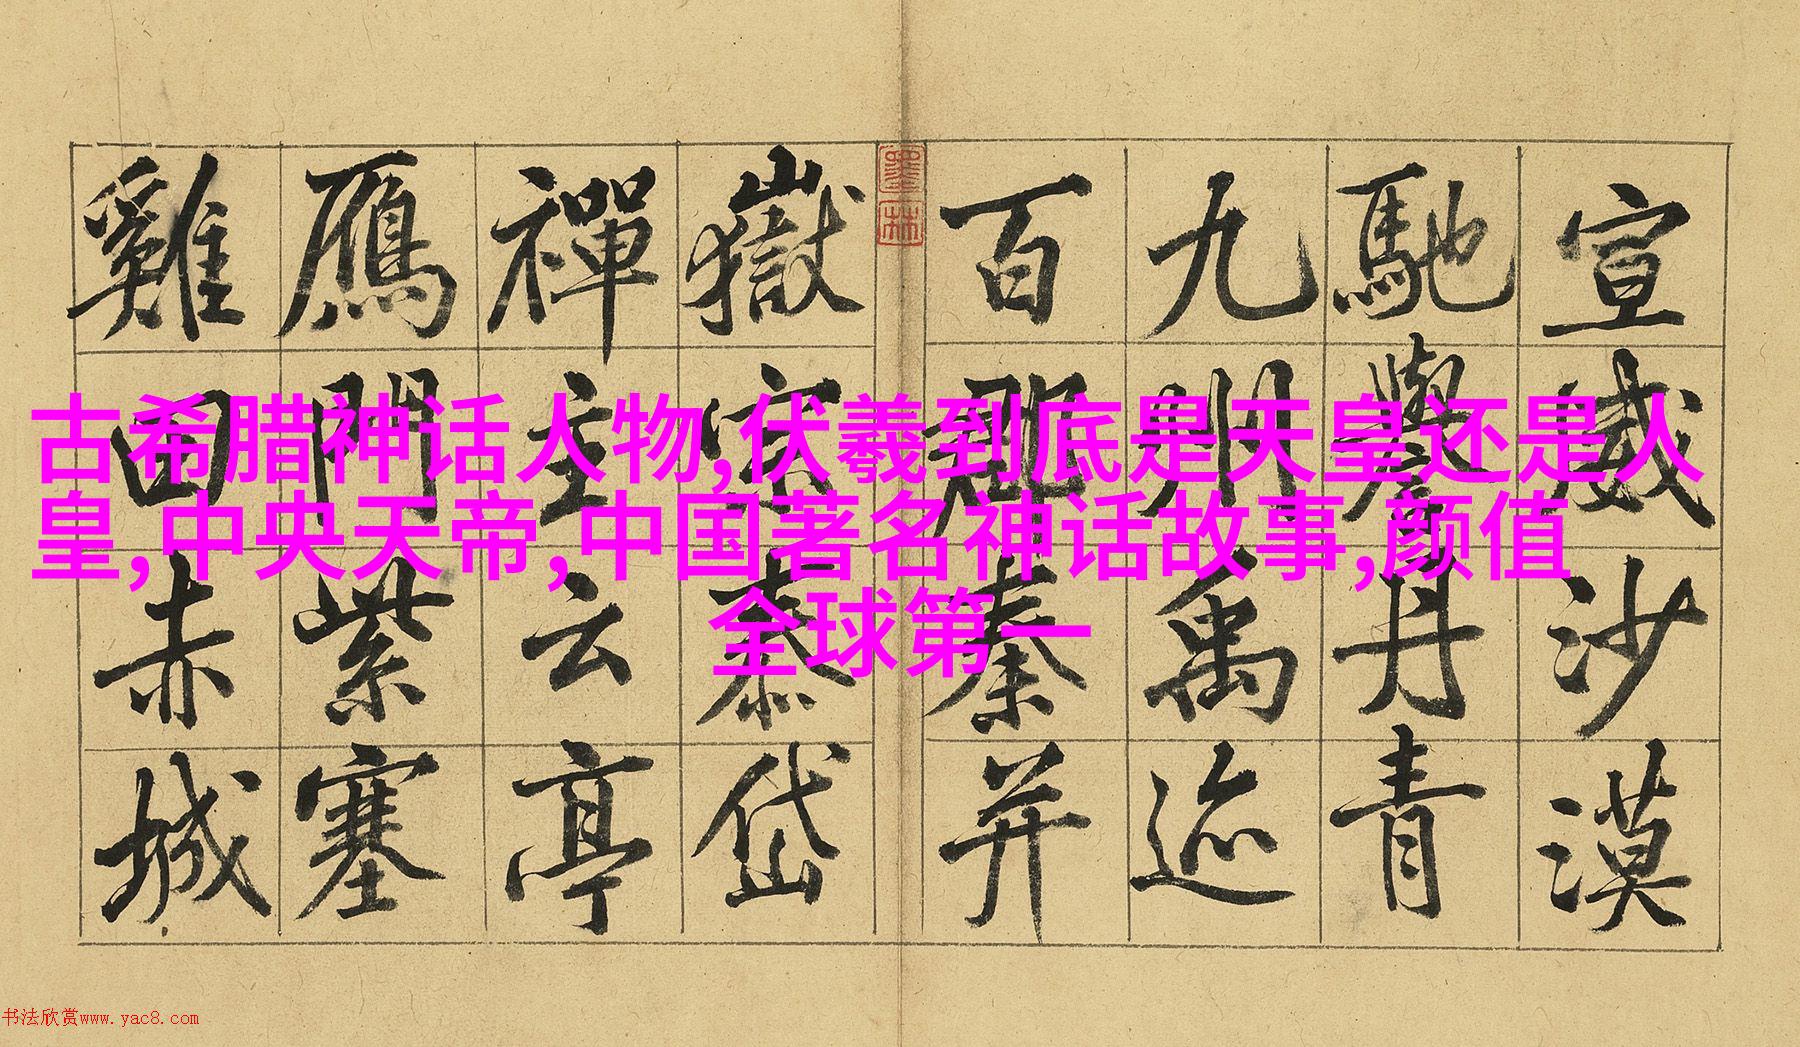 古希腊神话人物,伏羲到底是天皇还是人
皇,中央天帝,中国著名神话故事,颜值
全球第一
宣威沙漠
馳譽丹青
九州禹迹
百郡秦并
墨林
嶽宗泰岱
禪主云亭
鴈門紫塞
雞田赤城
书法欣赏www.yac8.com